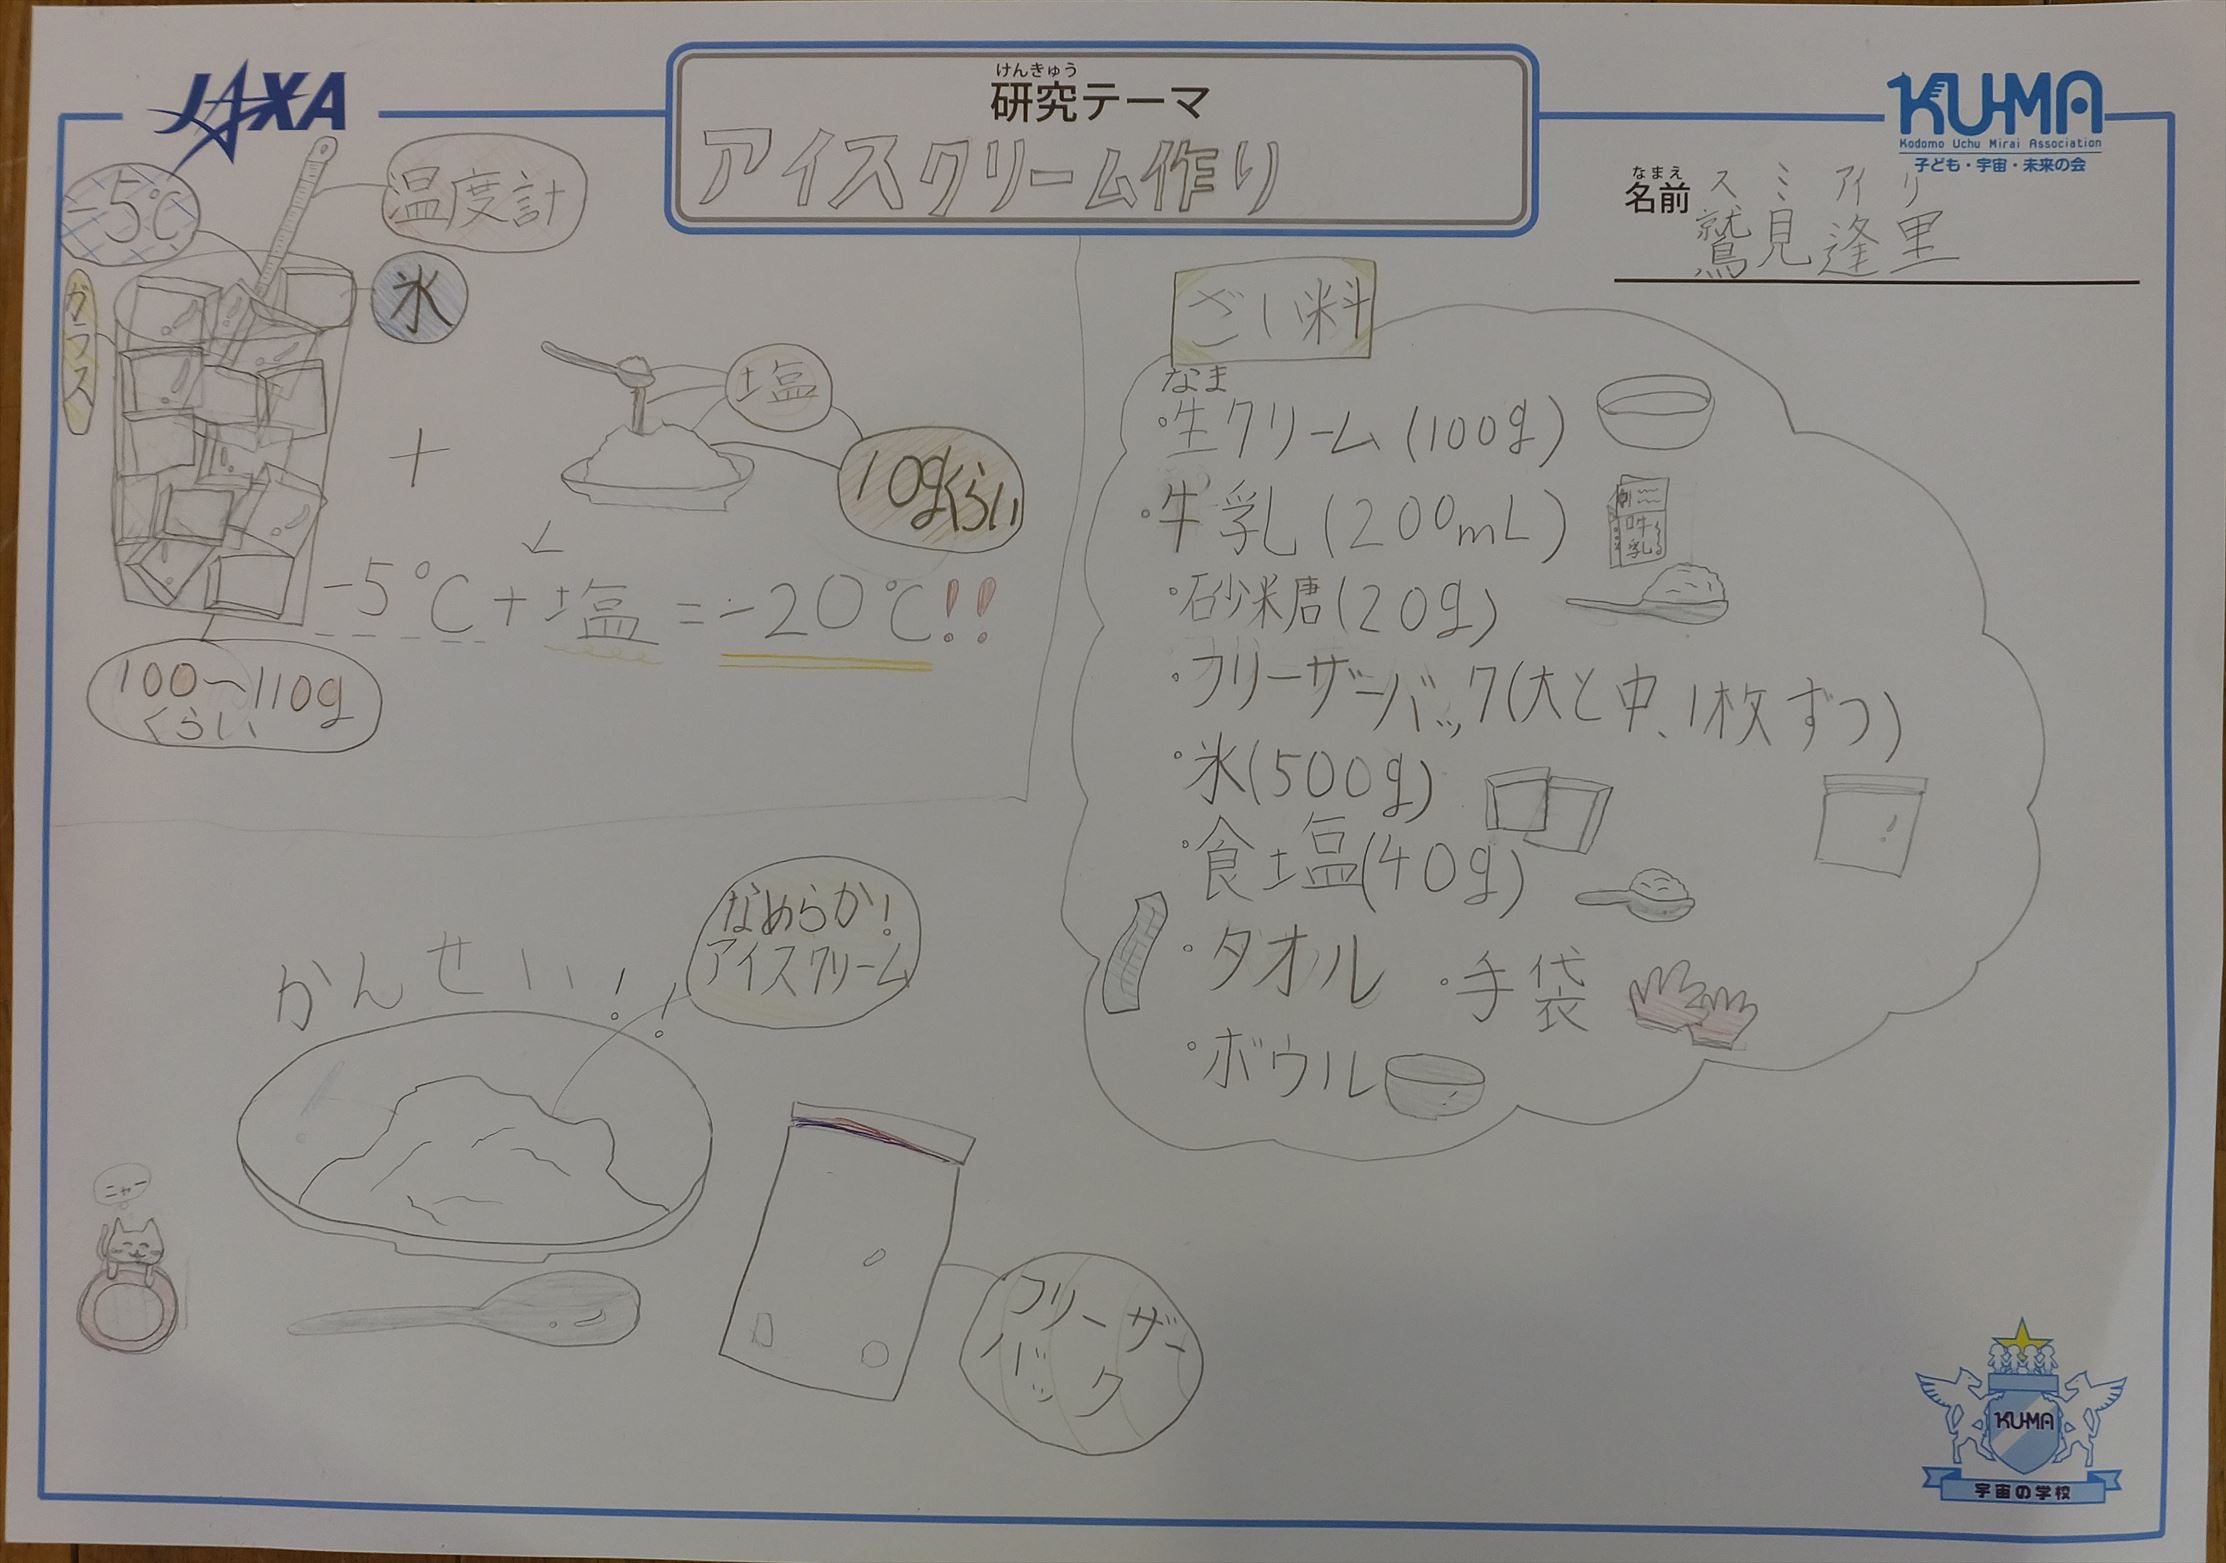 JAXA
けんきゅう
研究テーマ
アイスクリーム作り
KU-MA
Kodomo Uchu Mirai Association
子ども・宇宙・未来の会
なまえ
名前
スミアイリ
鷲見逢里
-5℃
温度計
ガラス
氷
+
塩
10gくらい
-5℃+塩=-20℃!!
100〜110g
くらい
ざい料
なま
・生クリーム(100g)
・牛乳(200mL)
牛乳
・砂糖(20g)
・フリーザーバック(大と中、1枚ずつ)
・氷(500g)
・食塩(40g)
・タオル ・手袋
・ボウル
かんせい!!
なめらか!
アイスクリーム
フリーザー
バック
ニャー
KU-MA
宇宙の学校